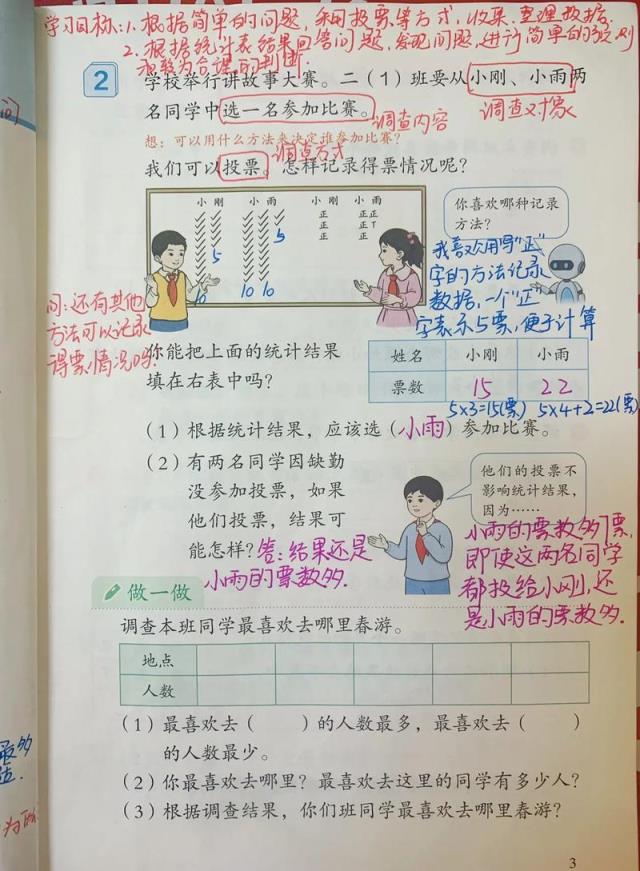 学习目标:1.根据简单的问题,采用投票等方式,收集.整理数据.
2.根据统计表结果回答问题,发现问题,进行简单的预测
和较为合理的判断.
2
学校举行讲故事大赛。二(1)班要从小刚、小雨两
名同学中选一名参加比赛。
调查内容
调查对象
想:可以用什么方法来决定谁参加比赛?
调查方式
我们可以投票。怎样记录得票情况呢?
小刚 小雨 小刚 小雨
正 正正
正 正
正 正
5 5
10 10 10
你喜欢哪种记录
方法?
我喜欢用写“正”
字的方法记录
数据,一个“正”
字表示5票,便于计算
问:还有其他
方法可以记录
得票情况吗?
你能把上面的统计结果
填在右表中吗?
姓名 小刚 小雨
票数 15 22
5×3=15(票) 5×4+2=22(票)
(1)根据统计结果,应该选(小雨)参加比赛。
(2)有两名同学因缺勤
没参加投票,如果
他们投票,结果可
能怎样?答:结果还是
小雨的票数多.
他们的投票不
影响统计结果,
因为……
小雨的票数多7票,
即使这两名同学
都投给小刚,还
是小雨的票数多.
做一做
调查本班同学最喜欢去哪里春游。
地点
人数
(1)最喜欢去( )的人数最多,最喜欢去( )
的人数最少。
(2)你最喜欢去哪里?最喜欢去这里的同学有多少人?
(3)根据调查结果,你们班同学最喜欢去哪里春游?
3